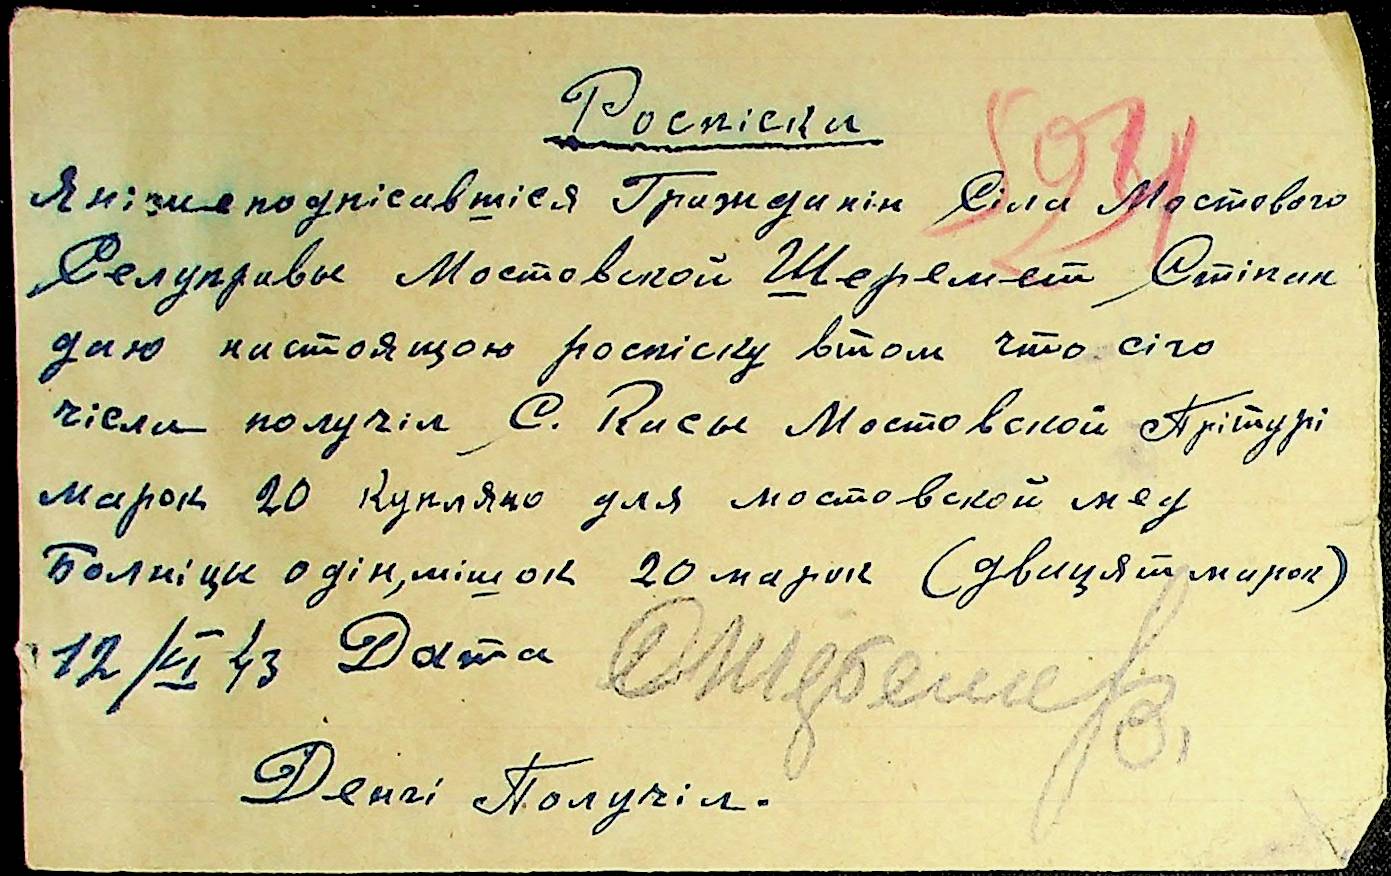 Роспіска
Я ніжеподпісавшіся Гражданін Сіла Мостового
Селуправы Мостовской Шеремет Стіпан
даю настоящою роспіску втом что сіго
чісла получіл С. Касы Мостовской Прітурі
марок 20 Купляно для мостовской мед
Болніцы одін, мішок 20 марок (двацят марок)
12/VI 43 Дата
Денгі Получіл.